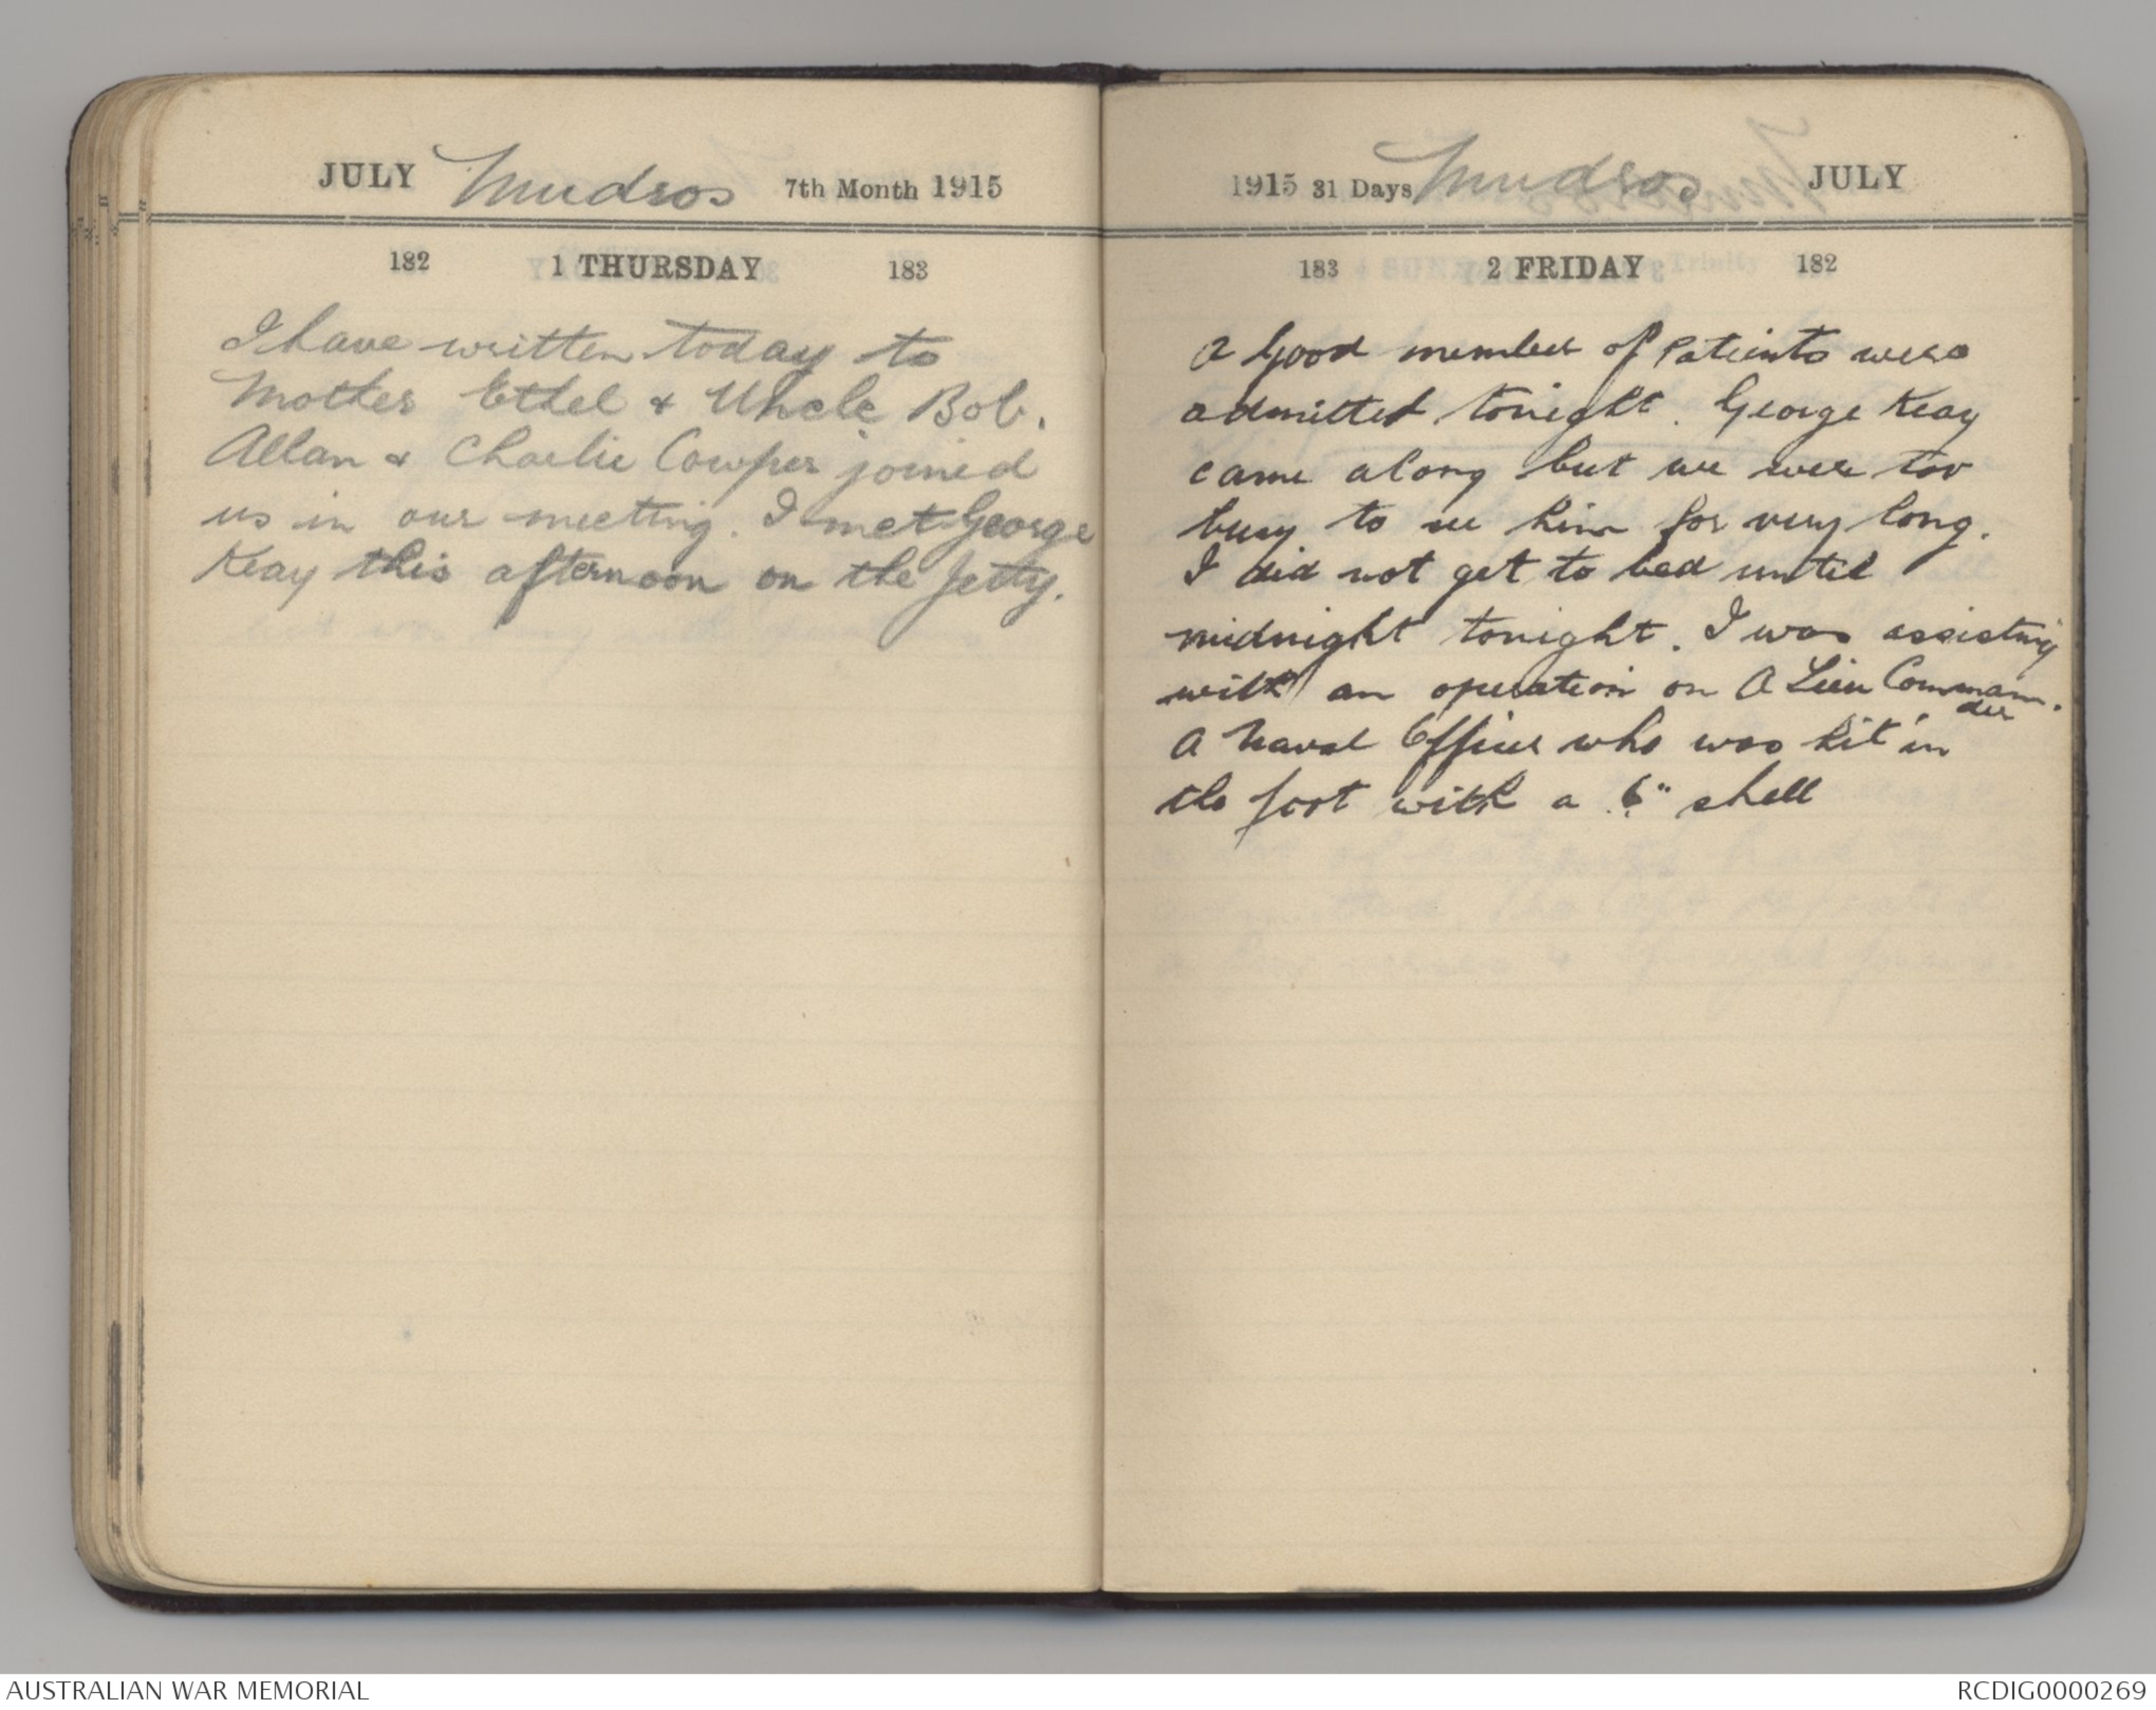 JULY Mudros 7th Month 1915
182 1 THURSDAY 183
I have written today to
Mother Ethel & Uncle Bob.
Allan & Charlie Cowper joined
us in our meeting. I met George
Keay this afternoon on the Jetty.
1915 31 Days Mudros JULY
183 2 FRIDAY 182
A Good number of Patients were
admitted tonight. George Keay
came along but we were too
busy to see him for very long.
I did not get to bed until
midnight tonight. I was assisting
with an operation on A Lieu Comman.
der
A Naval Officer who was hit in
the foot with a 6" shell
AUSTRALIAN WAR MEMORIAL
RCDIG0000269